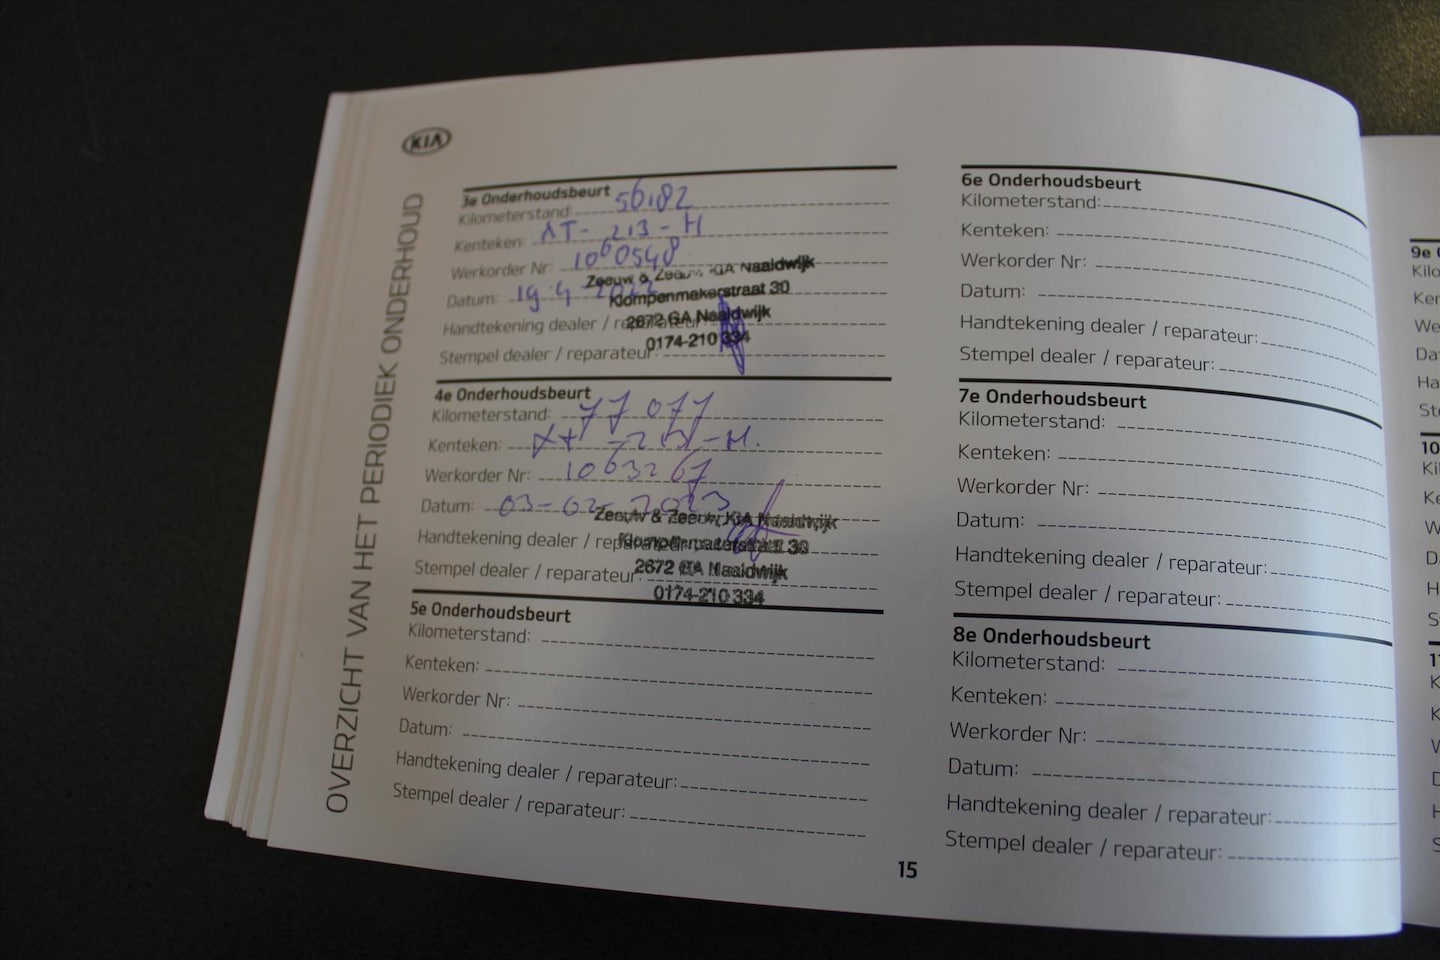 KIA
OVERZICHT VAN HET PERIODIEK ONDERHOUD
3e Onderhoudsbeurt
Kilometerstand: 56182
Kenteken: XT-213-H
Werkorder Nr: 1060548
Datum: 19-4-2022
Handtekening dealer / reparateur:
Stempel dealer / reparateur:
Zeeuw & Zeeuw KIA Naaldwijk
Klompenmakerstraat 30
2672 GA Naaldwijk
0174-210 334
4e Onderhoudsbeurt
Kilometerstand: 77077
Kenteken: XT-213-H.
Werkorder Nr: 1063267
Datum: 03-02-2023
Handtekening dealer / reparateur:
Stempel dealer / reparateur:
Zeeuw & Zeeuw KIA Naaldwijk
30
2672 GA Naaldwijk
0174-210 334
5e Onderhoudsbeurt
Kilometerstand:
Kenteken:
Werkorder Nr:
Datum:
Handtekening dealer / reparateur:
Stempel dealer / reparateur:
6e Onderhoudsbeurt
Kilometerstand:
Kenteken:
Werkorder Nr:
Datum:
Handtekening dealer / reparateur:
Stempel dealer / reparateur:
7e Onderhoudsbeurt
Kilometerstand:
Kenteken:
Werkorder Nr:
Datum:
Handtekening dealer / reparateur:
Stempel dealer / reparateur:
8e Onderhoudsbeurt
Kilometerstand:
Kenteken:
Werkorder Nr:
Datum:
Handtekening dealer / reparateur:
Stempel dealer / reparateur:
15
9e
10